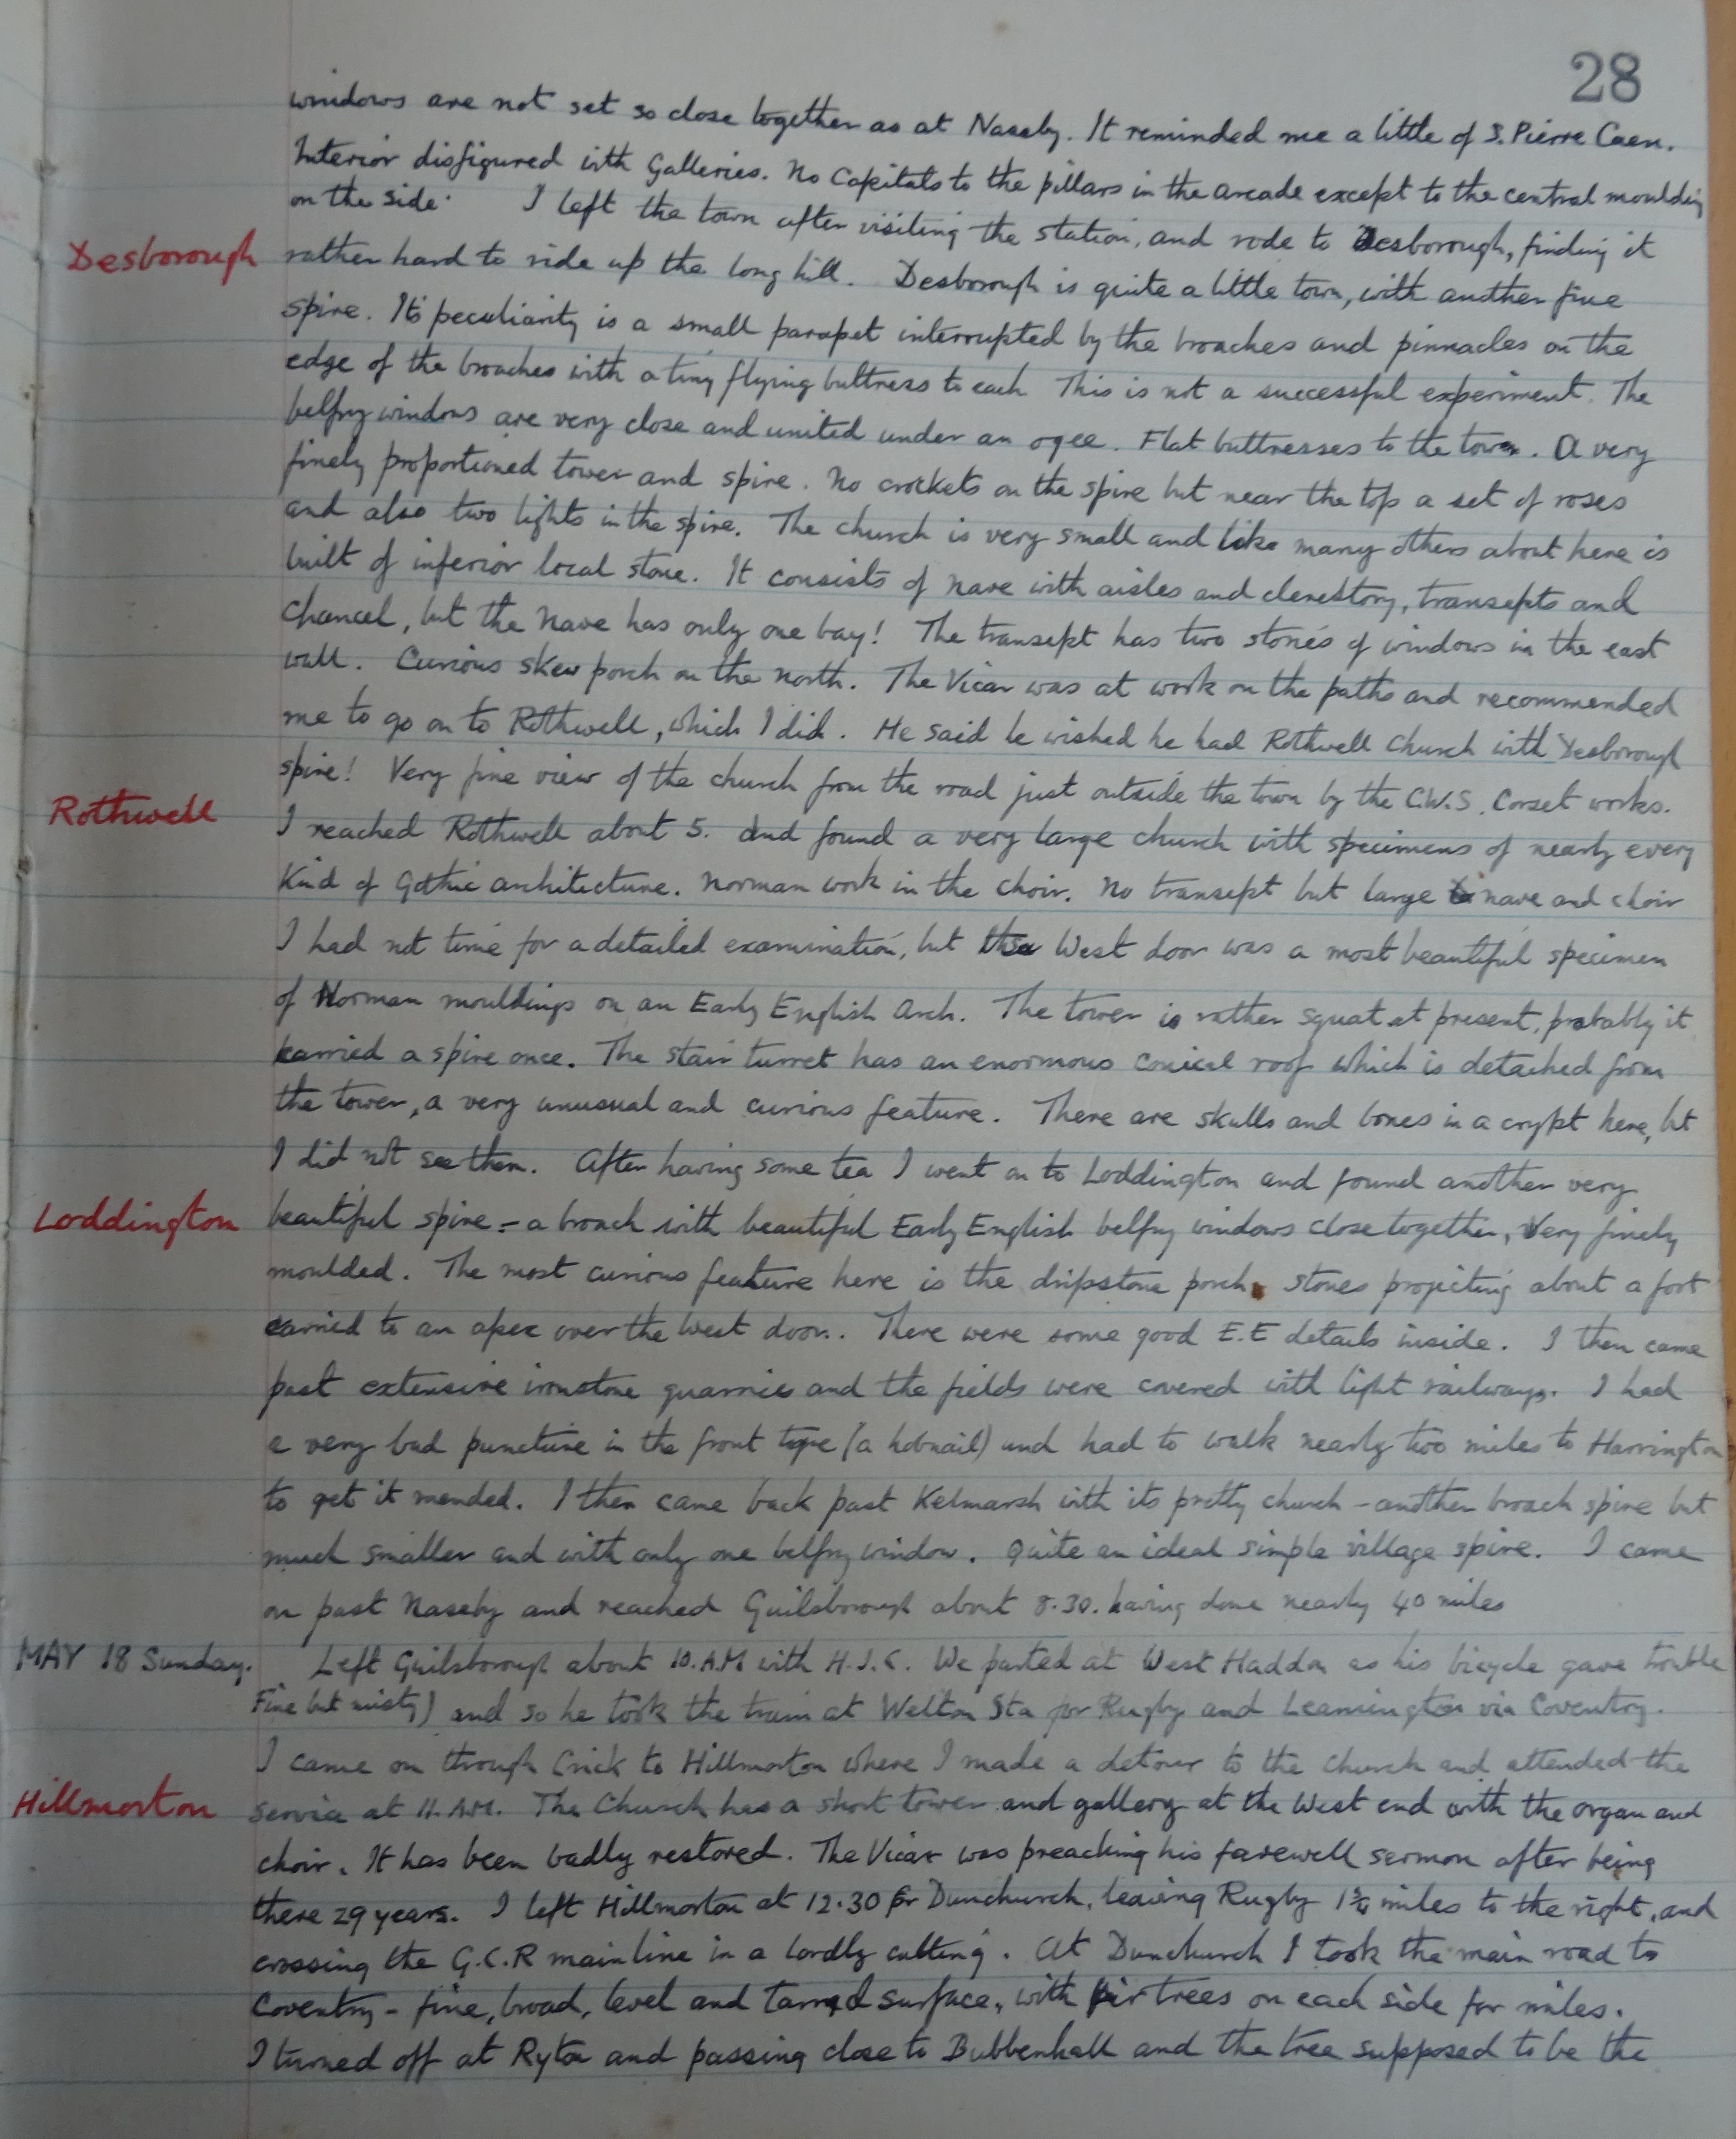 28
windows are not set so close together as at Naseby. It reminded me a little of S. Pierre Caen.
Interior disfigured with Galleries. No Capitals to the pillars in the arcade except to the central moulding
on the side. I left the town after visiting the station, and rode to Desborough, finding it
Desborough rather hard to ride up the long hill. Desborough is quite a little town, with another fine
spire. Its peculiarity is a small parapet interrupted by the broaches and pinnacles on the
edge of the broaches with a tiny flying buttress to each This is not a successful experiment. The
belfry windows are very close and united under an ogee. Flat buttresses to the tower. A very
finely proportioned tower and spire. No crockets on the spire but near the top a set of roses
and also two lights in the spire. The church is very small and like many others about here is
built of inferior local stone. It consists of nave with aisles and clerestory, transepts and
Chancel, but the Nave has only one bay! The transept has two stories of windows in the east
wall. Curious skew porch on the north. The Vicar was at work on the paths and recommended
me to go on to Rothwell, which I did. He said he wished he had Rothwell Church with Desborough
spire! Very fine view of the church from the road just outside the town by the C.W.S. Corset works.
Rothwell I reached Rothwell about 5. and found a very large church with specimens of nearly every
Kind of Gothic architecture. Norman work in the choir. No transept but large nave and choir
I had not time for a detailed examination, but the West door was a most beautiful specimen
of Norman mouldings on an Early English Arch. The tower is rather squat at present, probably it
carried a spire once. The stair turret has an enormous conical roof which is detached from
the tower, a very unusual and curious feature. There are skulls and bones in a crypt here, but
I did not see them. After having some tea I went on to Loddington and found another very
Loddington beautiful spire = a broach with beautiful Early English belfry windows close together, very finely
moulded. The most curious feature here is the dripstone porch, stones projecting about a foot
carried to an apex over the West door. There were some good E.E details inside. I then came
past extensive ironstone quarries and the fields were covered with light railways. I had
a very bad puncture in the front tyre (a hobnail) and had to walk nearly two miles to Harrington
to get it mended. I then came back past Kelmarsh with its pretty church - another broach spire but
much smaller and with only one belfry window. Quite an ideal simple village spire. I came
on past Naseby and reached Guilsborough about 8.30. having done nearly 40 miles
MAY 18 Sunday. Left Guilsborough about 10.A.M with H.J.C. We parted at West Haddon as his bicycle gave trouble
Fine but misty) and so he took the train at Welton Sta for Rugby and Leamington via Coventry.
I came on through Crick to Hillmorton where I made a detour to the church and attended the
Hillmorton service at 11. A.M. The Church has a short tower and gallery at the West end with the organ and
choir. It has been badly restored. The Vicar was preaching his farewell sermon after being
there 29 years. I left Hillmorton at 12.30 for Dunchurch, leaving Rugby 1¾ miles to the right, and
crossing the G.C.R main line in a lordly cutting. At Dunchurch I took the main road to
Coventry - fine, broad, level and tarred surface, with fir trees on each side for miles.
I turned off at Ryton and passing close to Bubbenhall and the tree supposed to be the